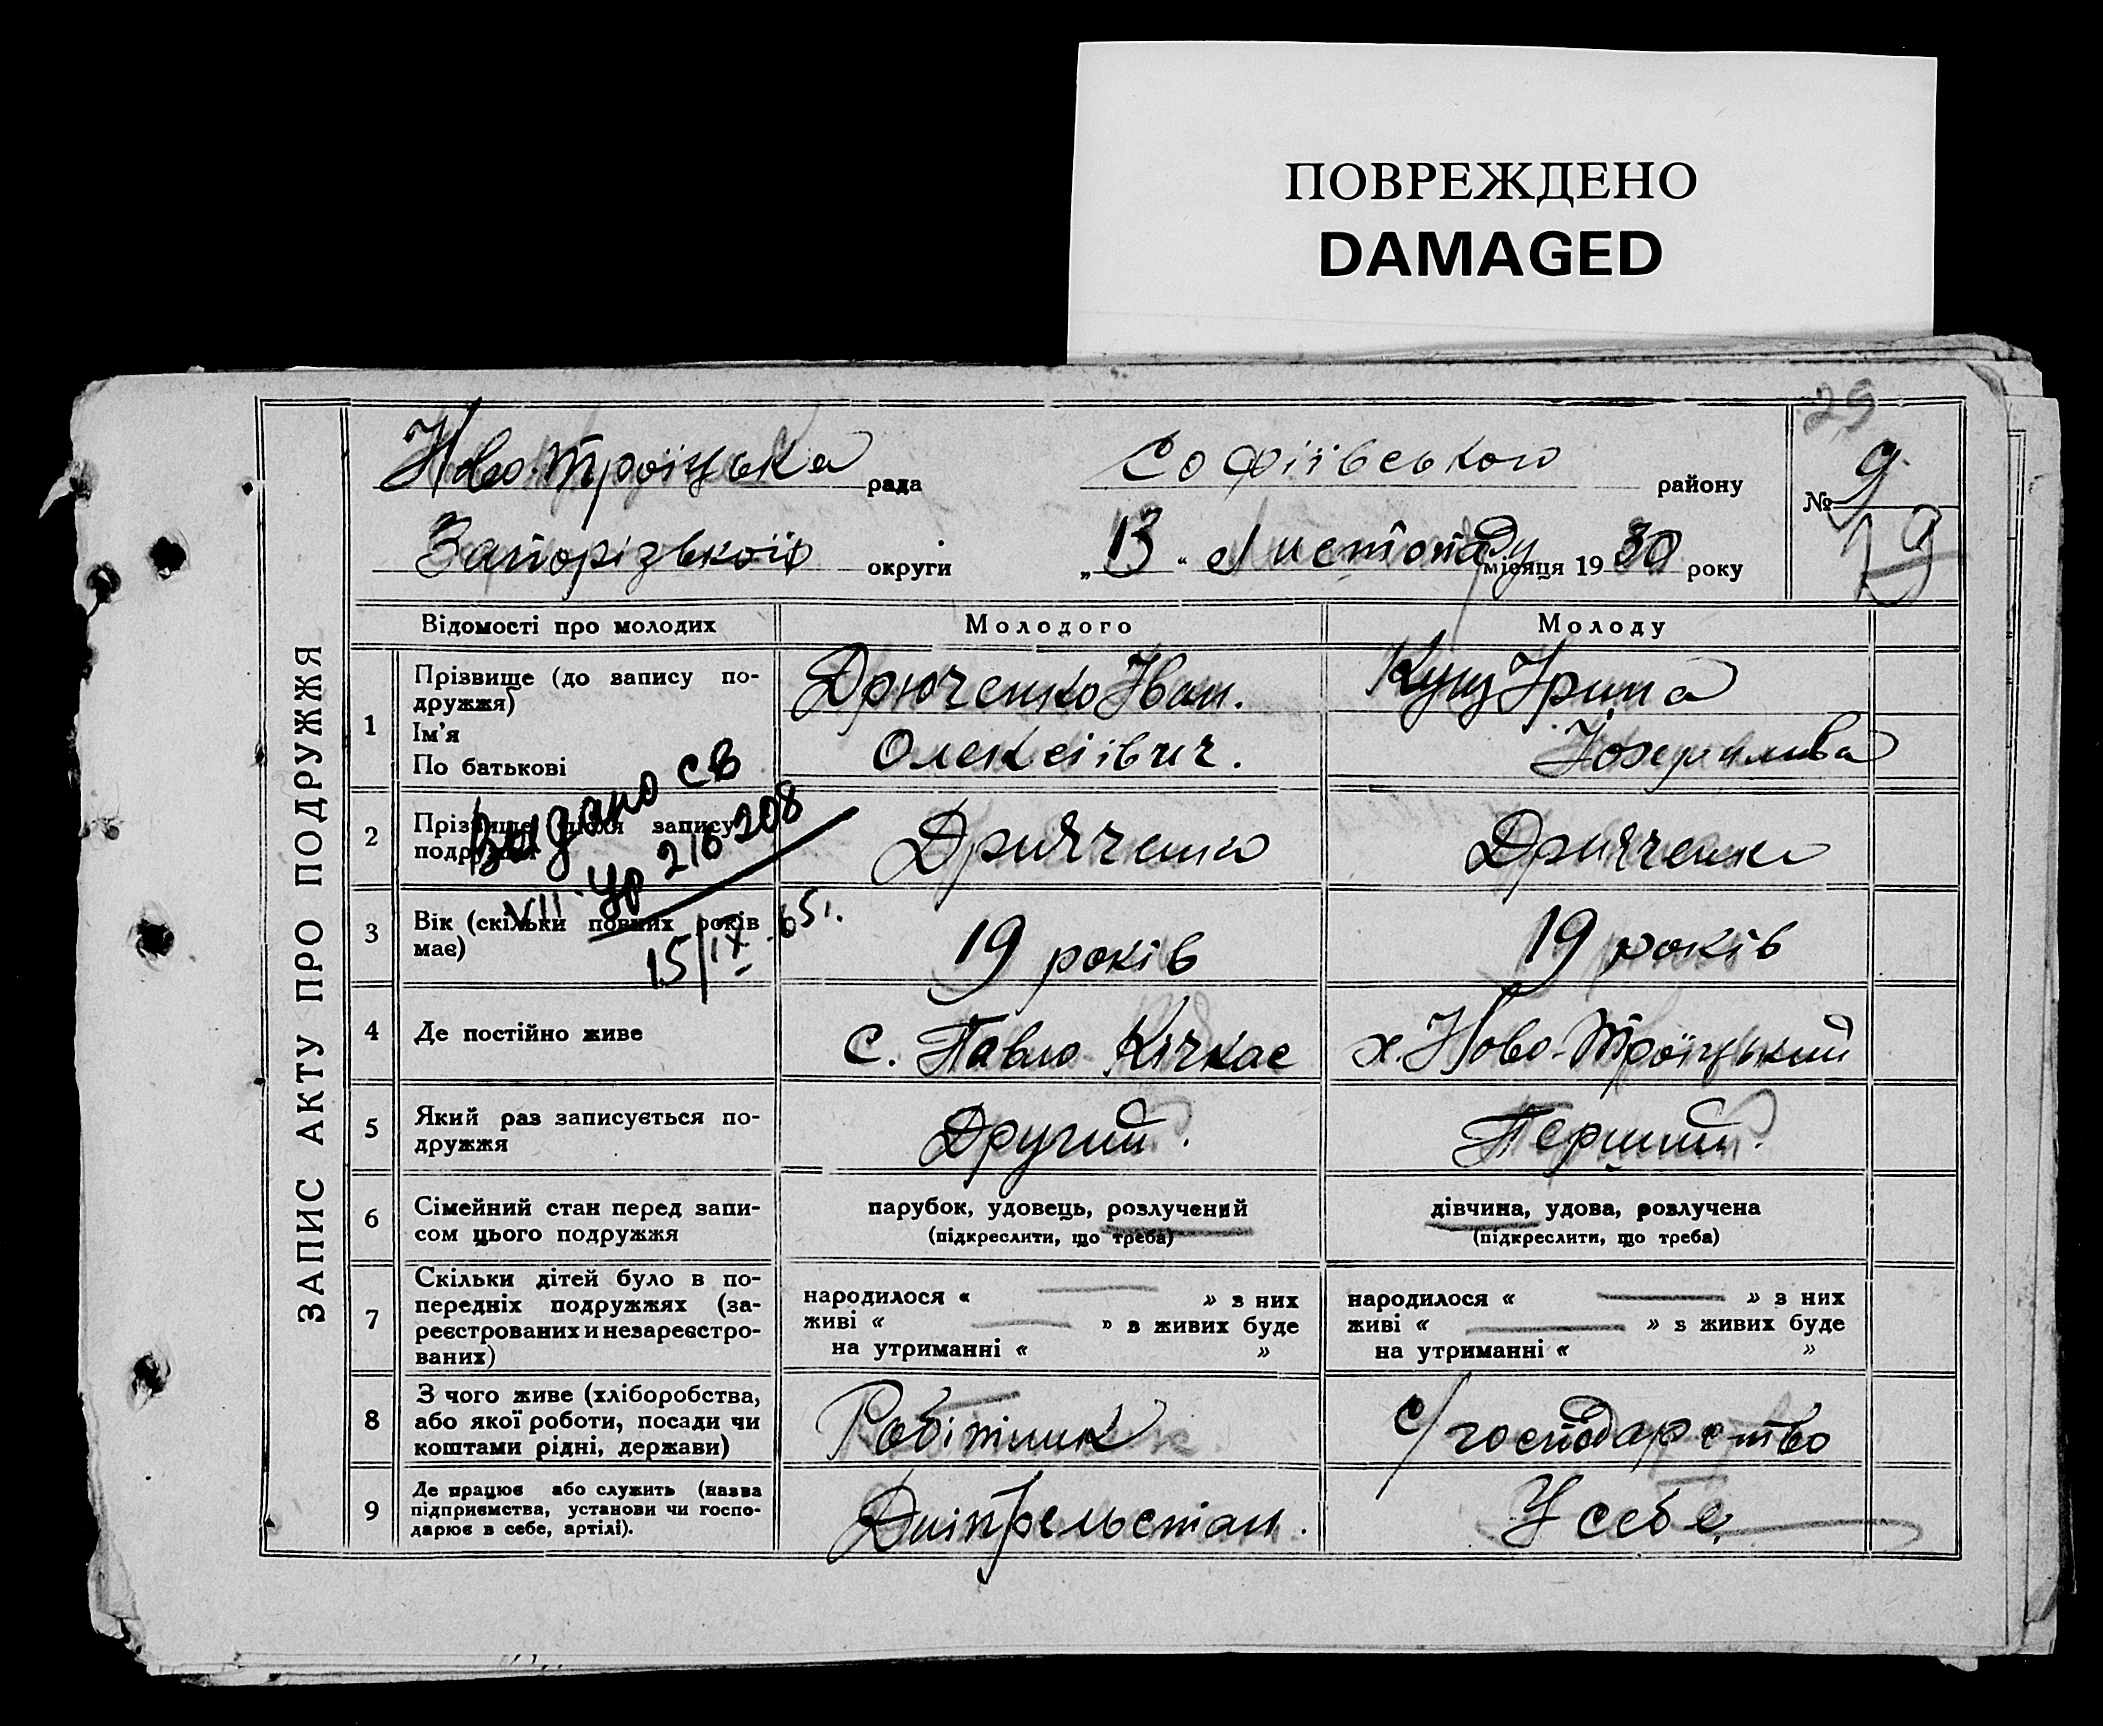 ПОВРЕЖДЕНО
DAMAGED
29
Ново-Троіцька рада
Софіївського району
№ 9
Запорізької округи
„13“ Листопаду місяця 1930 року
19
ЗАПИС АКТУ ПРО ПОДРУЖЖЯ
Відомості про молодих
Молодого
Молоду
1
Прізвище (до запису по-
дружжя)
Ім'я
По батькові
Дрюченко Іван.
Олексіївич.
Куц Ірина
2
Прізвище після запису
подружжя
Дрюченко
Дрюченко
Видано св
VII-Ур 216208
15/IX-65г.
3
Вік (скільки повних років
має)
19 років
19 років
4
Де постійно живе
с. Павло Кічкас
х. Ново-Троїцький
5
Який раз записується по-
дружжя
Другий.
Перший.
6
Сімейний стан перед запи-
сом цього подружжя
парубок, удовець, розлучений
(підкреслити, що треба)
дівчина, удова, розлучена
(підкреслити, що треба)
7
Скільки дітей було в по-
передніх подружжях (за-
реєстрованих и незареєстро-
ваних)
народилося « — » з них
живі « — » з живих буде
на утриманні « »
народилося « — » з них
живі « — » з живих буде
на утриманні « »
8
З чого живе (хліборобства,
або якої роботи, посади чи
коштами рідні, держави)
Робітник
с/господарство
9
Де працює або служить (назва
підприємства, установи чи госпо-
дарює в себе, артілі).
Дніпрельстан.
У себе